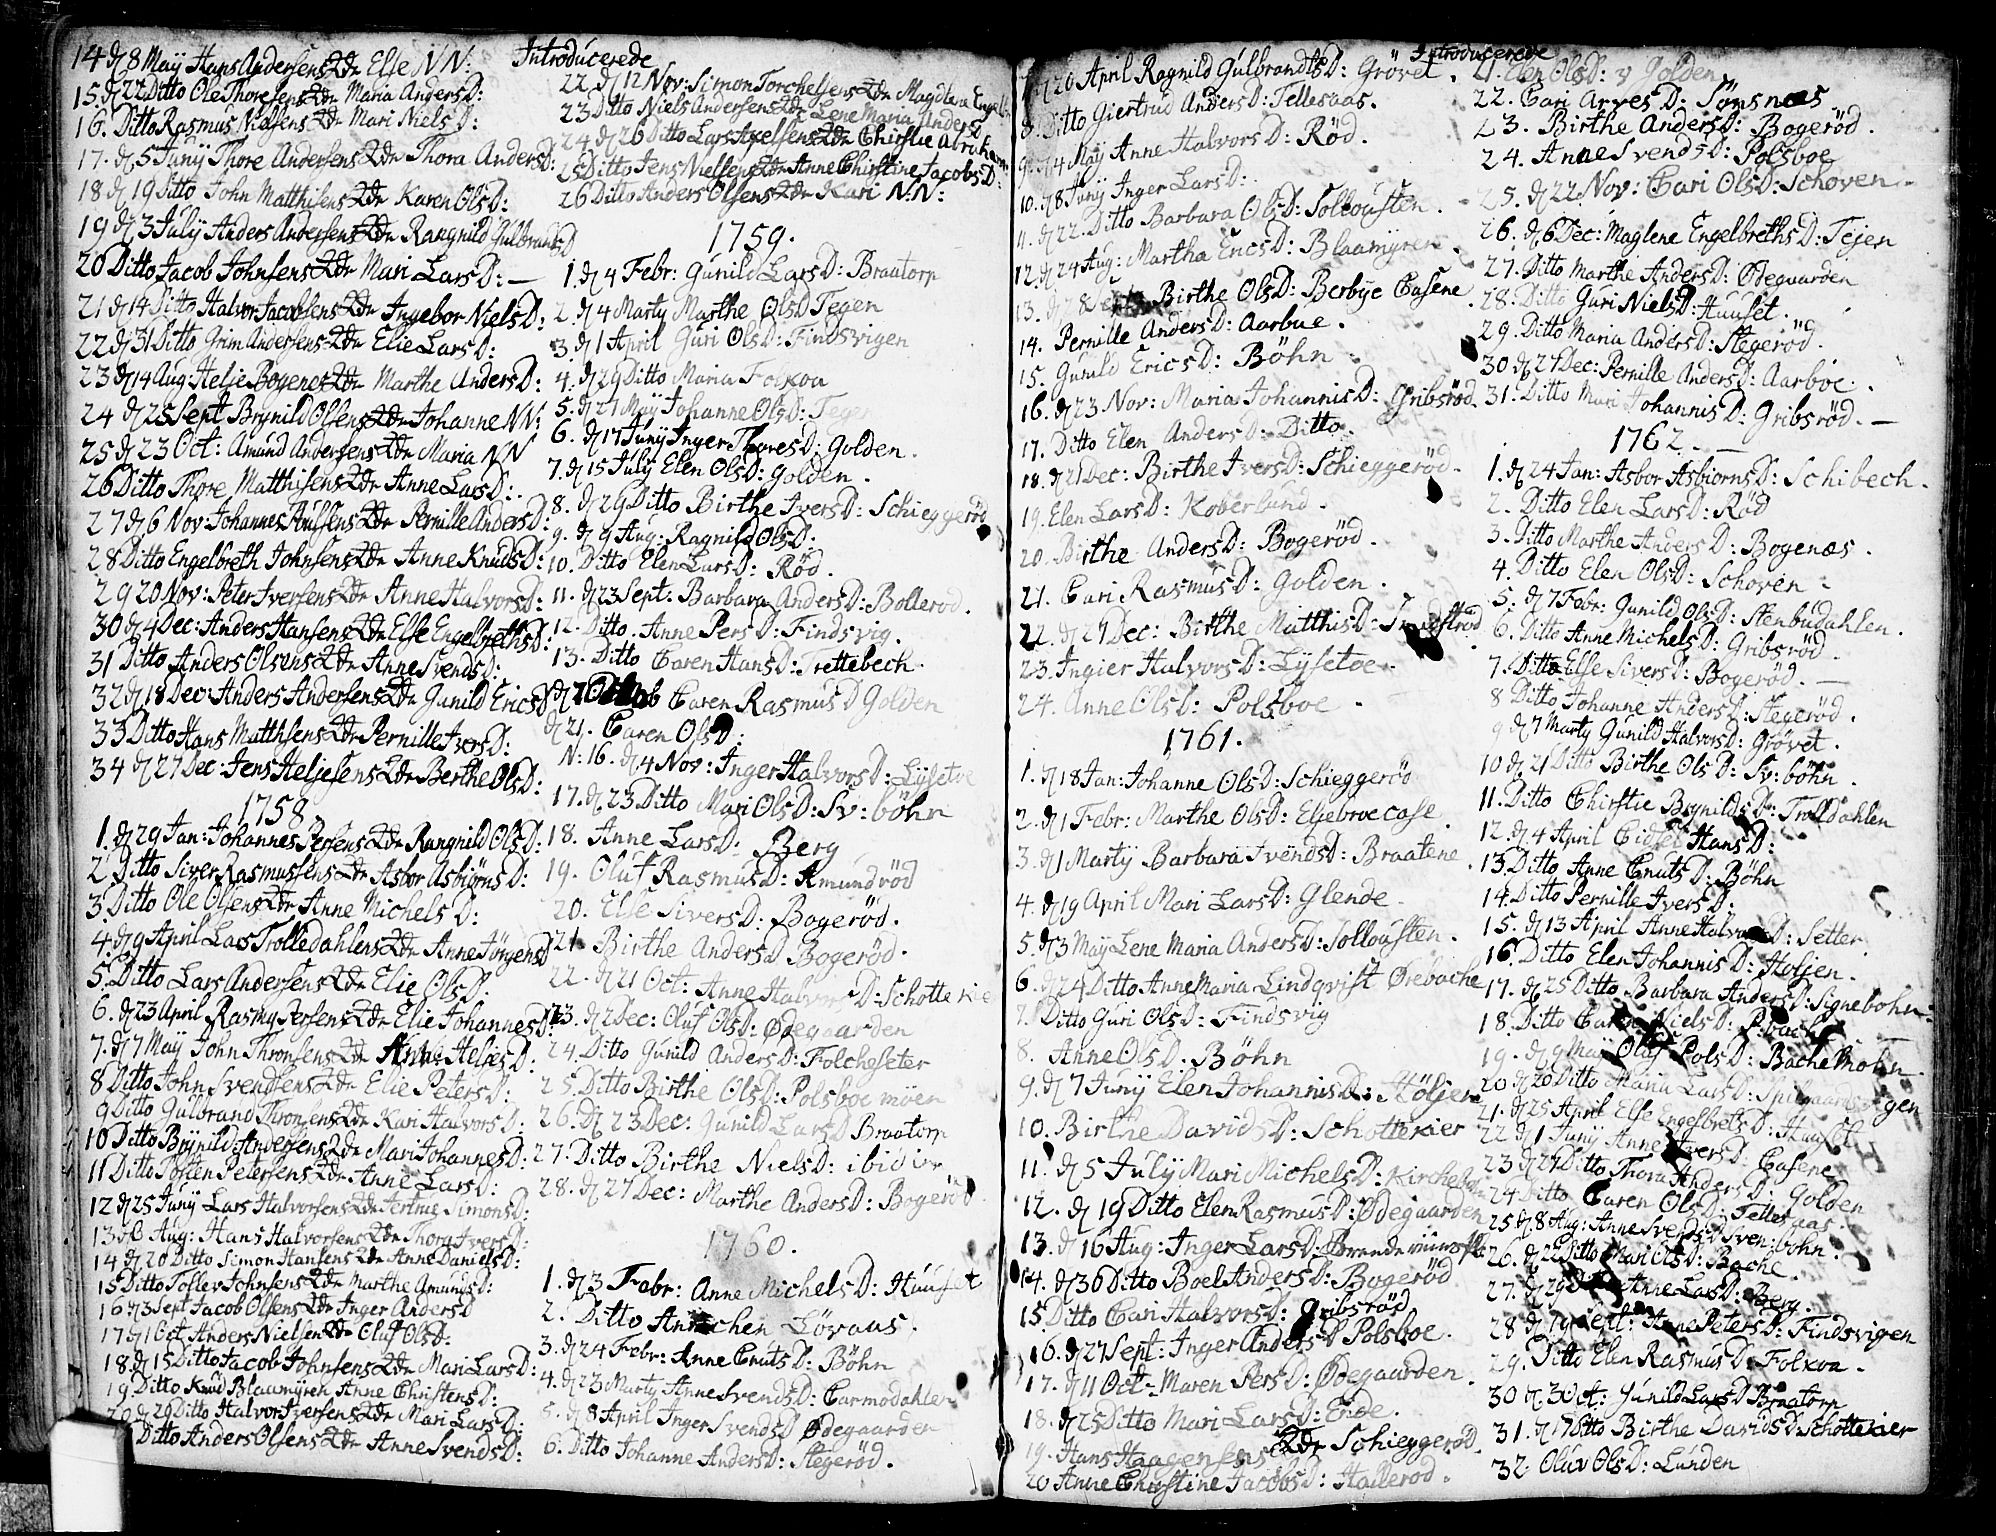 Introducerede
14 dj 8 May Hans Andersens Qde Else N N:
15. dj 22 Ditto Ole Thoresens Qde Maria AndersD:
16. Ditto Rasmus Nielsens Qde Mari NielsD:
17. dj 5 Junÿ Thore Andersens Qde Thora AndersD:
18 dj 19 Ditto John Matthisens Qde Karen OlsD:
19 dj 3 Julÿ Anders Andersens Qde Rangnild GulbrandsD
20 Ditto Jacob Johnsens Qde Mari LarsD: —
21 dj 14 Ditto Halvor Jacobsens Qde Ingebor NielsD:
22 dj 31 Ditto Grim Andersens Qde Elie LarsD:
23 dj 14 Aug: Helje Bogenes Qde Marthe AndersD:
24 dj 25 Sept Brynild Olsens Qde Johanne NN:
25 dj 23 Oct: Amund Andersens Qde Maria NN
26 Ditto Thore Matthisens Qde Anne LarsD:
27 dj 6 Nov: Johannes Qde Pernille AndersD:
28 Ditto Engelbreth Johnsens Qde Anne KnudsD:
29 20 Nov: Peter Iversens Qde Anne HalvorsD:
30 dj 4 Dec: Anders Hansens Qde Else EngelbrethsD:
31 Ditto Anders Olsens Qde Anne SvendsD:
32 dj 18 Dec: Anders Andersens Qde Gunild EricsD
33 Ditto Hans Matthsens Qde Pernille IversD:
34 dj 27 Dec: Jens Heljesens Qde Berthe OlsD:
1758.
1. dj 29 Jan: Johannes Persens Qde Rangnild OlsD:
2 Ditto Siver Rasmussens Qde Asbor AsbiørnsD:
3 Ditto Ole Olsens Qde Anne MichelsD:
4. dj 9 April Lars Trolledahlens Qde Anne JörgensD
5. Ditto Lars Andersens Qde Elie OlsD:
6. dj 23 April Rasmus Persens Qde Elie JohannesD:
7. dj 7 May John Thronsens Qde Anne
8 Ditto John Svendsens Qde Elie PetersD:
9 Ditto Gulbrand Thronsens Qde Kari HalvorsD:
10 Ditto Brÿnild Andersens Qde Mari JohannesD:
11 Ditto Tosten Petersens Qde Anne LarsD:
12 dj 25 Junÿ Lars Halvorsens Qde Jertrue SimonsD:
13 dj 6 Aug: Hans Halvorsens Qde Thora IversD:
14 dj 20 Ditto Simon Hansens Qde Anne DanielsD:
15 Ditto Toslev Johnsens Qde Marthe AmundsD:
16 dj 3 Sept Jacob Olsens Qde Inger AndersD
17 dj 1 Oct Anders Nielsens Qde Oluf OlsD:
18 dj 15 Ditto Jacob Johnsens Qde Mari LarsD:
19 Ditto Knud Blaamÿren Anne ChristensD:
20 dj 29 Ditto Halvor Iversens Qde Mari LarsD:
Ditto Anders Olsens Qde Anne SvendsD:
22. dj 12 Nov: Simon Torchelsens Qde Magdlena
23 Ditto Niels Andersens Qde Lene Maria AndersD
24 dj 26 Ditto Lars Axelsens Qde Chirstie
25 Ditto Jens Nielsens Qde Anne Christine JacobsD:
26 Ditto Anders Olsens Qde Kari N:N:
1759.
1. dj 4 Febr: Gunild LarsD: Braatorp
2. dj 4 Martÿ Marthe OlsD Tegen
3. dj 1 April Guri OlsD: Findsvigen
4. dj 29 Ditto Maria Folkoa
5. dj 27 Maÿ Johanne OlsD: Tegen
6. dj 17 Junÿ Inger ThoresD: Golden.
7. dj 15 Julÿ Elen OlsD: Golden.
8. dj 29 Ditto Birthe IversD: Schieggeröd
9. dj 9 Aug: Ragnild OlsD:
10. Ditto Elen LarsD: Röd.
11. dj 23 Sept: Barbara AndersD: Bolleröd.
12. Ditto. Anne PersD: Findsvig.
13. Ditto Caren HansD: Trettebech.
Caren RasmusD Golden
dj 21. Caren OlsD:
N: 16. dj 4 Nov: Inger HalvorsD: Lÿsetoe
17. dj 23 Ditto Mari OlsD: Sv: böhn
18. Anne LarsD: Berg
19. Oluf RasmusD: Amundröd
20. Else SiversD: Bogeröd.
21. Birthe AndersD Bogeröd.
22. dj 21 Oct: Anne HalvorsD: Schottekier
23. dj 2 Dec: Oluf OlsD: Ødegaarden
24. Ditto Gunild AndersD: Folcheseter
25. Ditto Birthe OlsD: Polsboe moen
26. dj 23 Dec: Gunild LarsD Braatorp
27. Ditto Birthe NielsD: ibidem
28. dj 27 Dec: Marthe AndersD: Bogeröd
1760.
1. dj 3 Febr: Anne MichelsD: Huuset
2. Ditto Annichen Lövaas.
3. dj 24 Febr: Anne CnutsD: Böhn
4. dj 23 Martÿ Anne SvendsD: Carmodahlen
5. dj 8 April Inger SvendsD Ødegaarden
6. Ditto Johanne AndersD: Stegeröd.
Introducerede
dj 20 April Ragnild GulbrandtsD: Grövet.
8. Ditto Giertrud AndersD: Tellesaas.
9. dj 4 Maÿ Anne HalvorsD: Röd.
10. dj 8 Junÿ Inger LarsD:
11. dj 22. Ditto Barbara OlsD: Sollousten.
12. dj 24 Aug: Martha EricsD: Blaamÿren
13. dj 28 Birthe OlsD: Berbÿe Casene
14. Pernille AndersD: Aarbue.
15. Gunild EricsD: Böhn
16. dj 23 Nov: Maria JohannisD: Gribsröd.
17. Ditto Elen AndersD: Ditto.
18. dj 21 Dec: Birthe IversD: Schieggeröd.
19. Elen LarsD: Koberlund.
20. Birthe AndersD: Bogeröd.
21. Cari RasmusD: Golden.
22. dj 27 Dec: Birthe MatthisD:
23. Ingier HalvorsD: Lÿsetoe.
24. Anne OlsD: Polsboe.
1761.
1. dj 18 Jan: Johanne OlsD: Schieggeröd
2. dj 1 Febr: Marthe OlsD: Eljebroecase.
3. dj 1 Martÿ Barbara SvendsD: Braatene.
4. dj 19 April Mari LarsD: Glende.
5. dj 3 Maÿ Lene Maria AndersD: Sollousten.
6. dj 24 Ditto Anne Maria Lindqvist Ørebache
7. Ditto Guri OlsD: Findsvig
8. Anne OlsD. Böhn
9. dj 7 Junÿ Elen JohannisD: Höljen
10. Birthe DavidsD: Schottekier
11. dj 5 Julÿ Mari MichelsD: Kircheboe
12. dj 19 Ditto Elen RasmusD: Ødegaarden
13. dj 16 Aug: Inger LarsD:
14. dj 30 Ditto Boel AndersD: Bogeröd
15 Ditto Cari HalvorsD: Gribsröd
16. dj 27 Sept: Inger AndersD Polsboe.
17. dj 11 Oct: Maren PersD: Ødegaarden.
18. dj 25 Ditto Mari LarsD: Ende.
19. Hans Haagensens Qde Schieggeröd.
20 Anne Christine JacobsD: Halleröd.
21. Elen OlsD: Golden
22. Cari ArvesD: Sønsnæs
23. Birthe AndersD: Bogeröd.
24. Anne SvendsD: Polsboe
25. dj 22. Nov: Cari OlsD: Schoven.
26. dj 6 Dec: Maglene EngelbrethsD: Tejen
27. Ditto Marthe AndersD: Ødegaarden
28. Ditto Guri NielsD: Huuset.
29. Ditto Maria AndersD: Stegeröd.
30 dj 27 Dec: Pernille AndersD: Aarboe.
31. Ditto Mari JohannisD: Gribsröd. —
1762. —
1. dj 24 Jan: Asbor AsbiornsD: Schibech.
2. Ditto Elen LarsD: Röd
3. Ditto Marthe AndersD: Bogenæs.
4. Ditto Elen OlsD: Schoven
5. dj 7 Febr: Gunild OlsD: Stenbudahlen.
6. Ditto Anne MichelsD: Gribsröd.
7. Ditto Else SiversD: Bogeröd. —
8 Ditto Johanne AndersD: Stegeröd.
9 dj 7 Martÿ Gunild HalvorsD: Grövet.
10 dj 21 Ditto Birthe OlsD: Sv: böhn.
11. Ditto Chirstie BrynildsD: Trolldahlen
12. dj 4 April HansD:
13. Ditto Anne CnutsD: Böhn
14. Ditto Pernille IversD.
15. dj 13 April Anne HalvorsD: Setter
16. Ditto Elen JohannisD: Holjen.
17. dj 25 Ditto Barbara AndersD: Signebøhn.
18. Ditto Caren NielsD:
19. dj 9 Maÿ Oluf PolsD: Bache Moen.
20 dj 20 Ditto Maria LarsD:
21. dj 25 April Else EngelbretsD: Huuset
22 dj 1 Junÿ Anne IversD: Casene
23 dj 27 Ditto Thora AndersD: Golden
24 Ditto Caren OlsD: Tellesaas.
25 dj 8 Aug: Anne SvendsD Sven: bohn.
26. dj 22 Ditto Mari OlsD: Bache.
27. dj 29 Anne LarsD: Berg.
28 dj 19 Sept: Anne PetersD: Findsvigen
29. Ditto Elen RasmusD: Folkoa.
30 dj 3 Oct: Gunild LarsD Braatorp
31. dj 17 Ditto Birthe DavidsD Schottekier
32. Oluv OlsD: Lunden